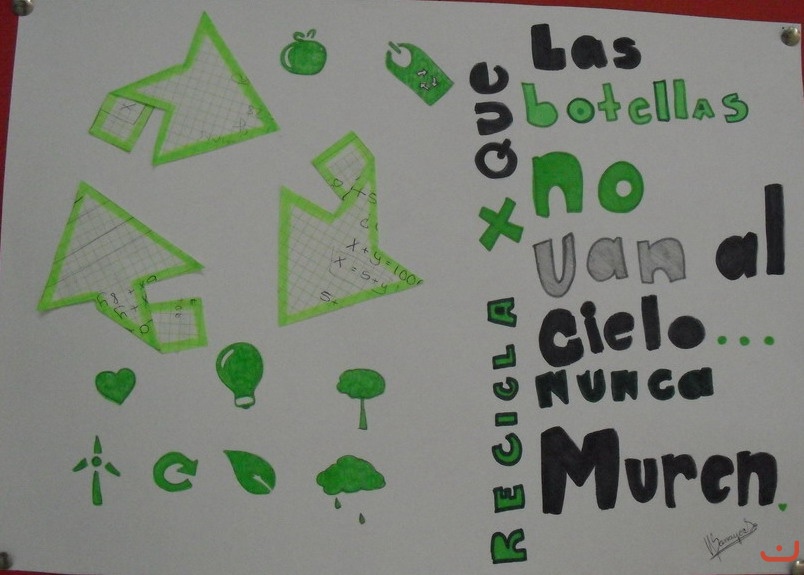 RECICLA X QUE
Las
botellas
no
van al
Cielo...
nunca
Mueren.
X+y=100
X=5+y